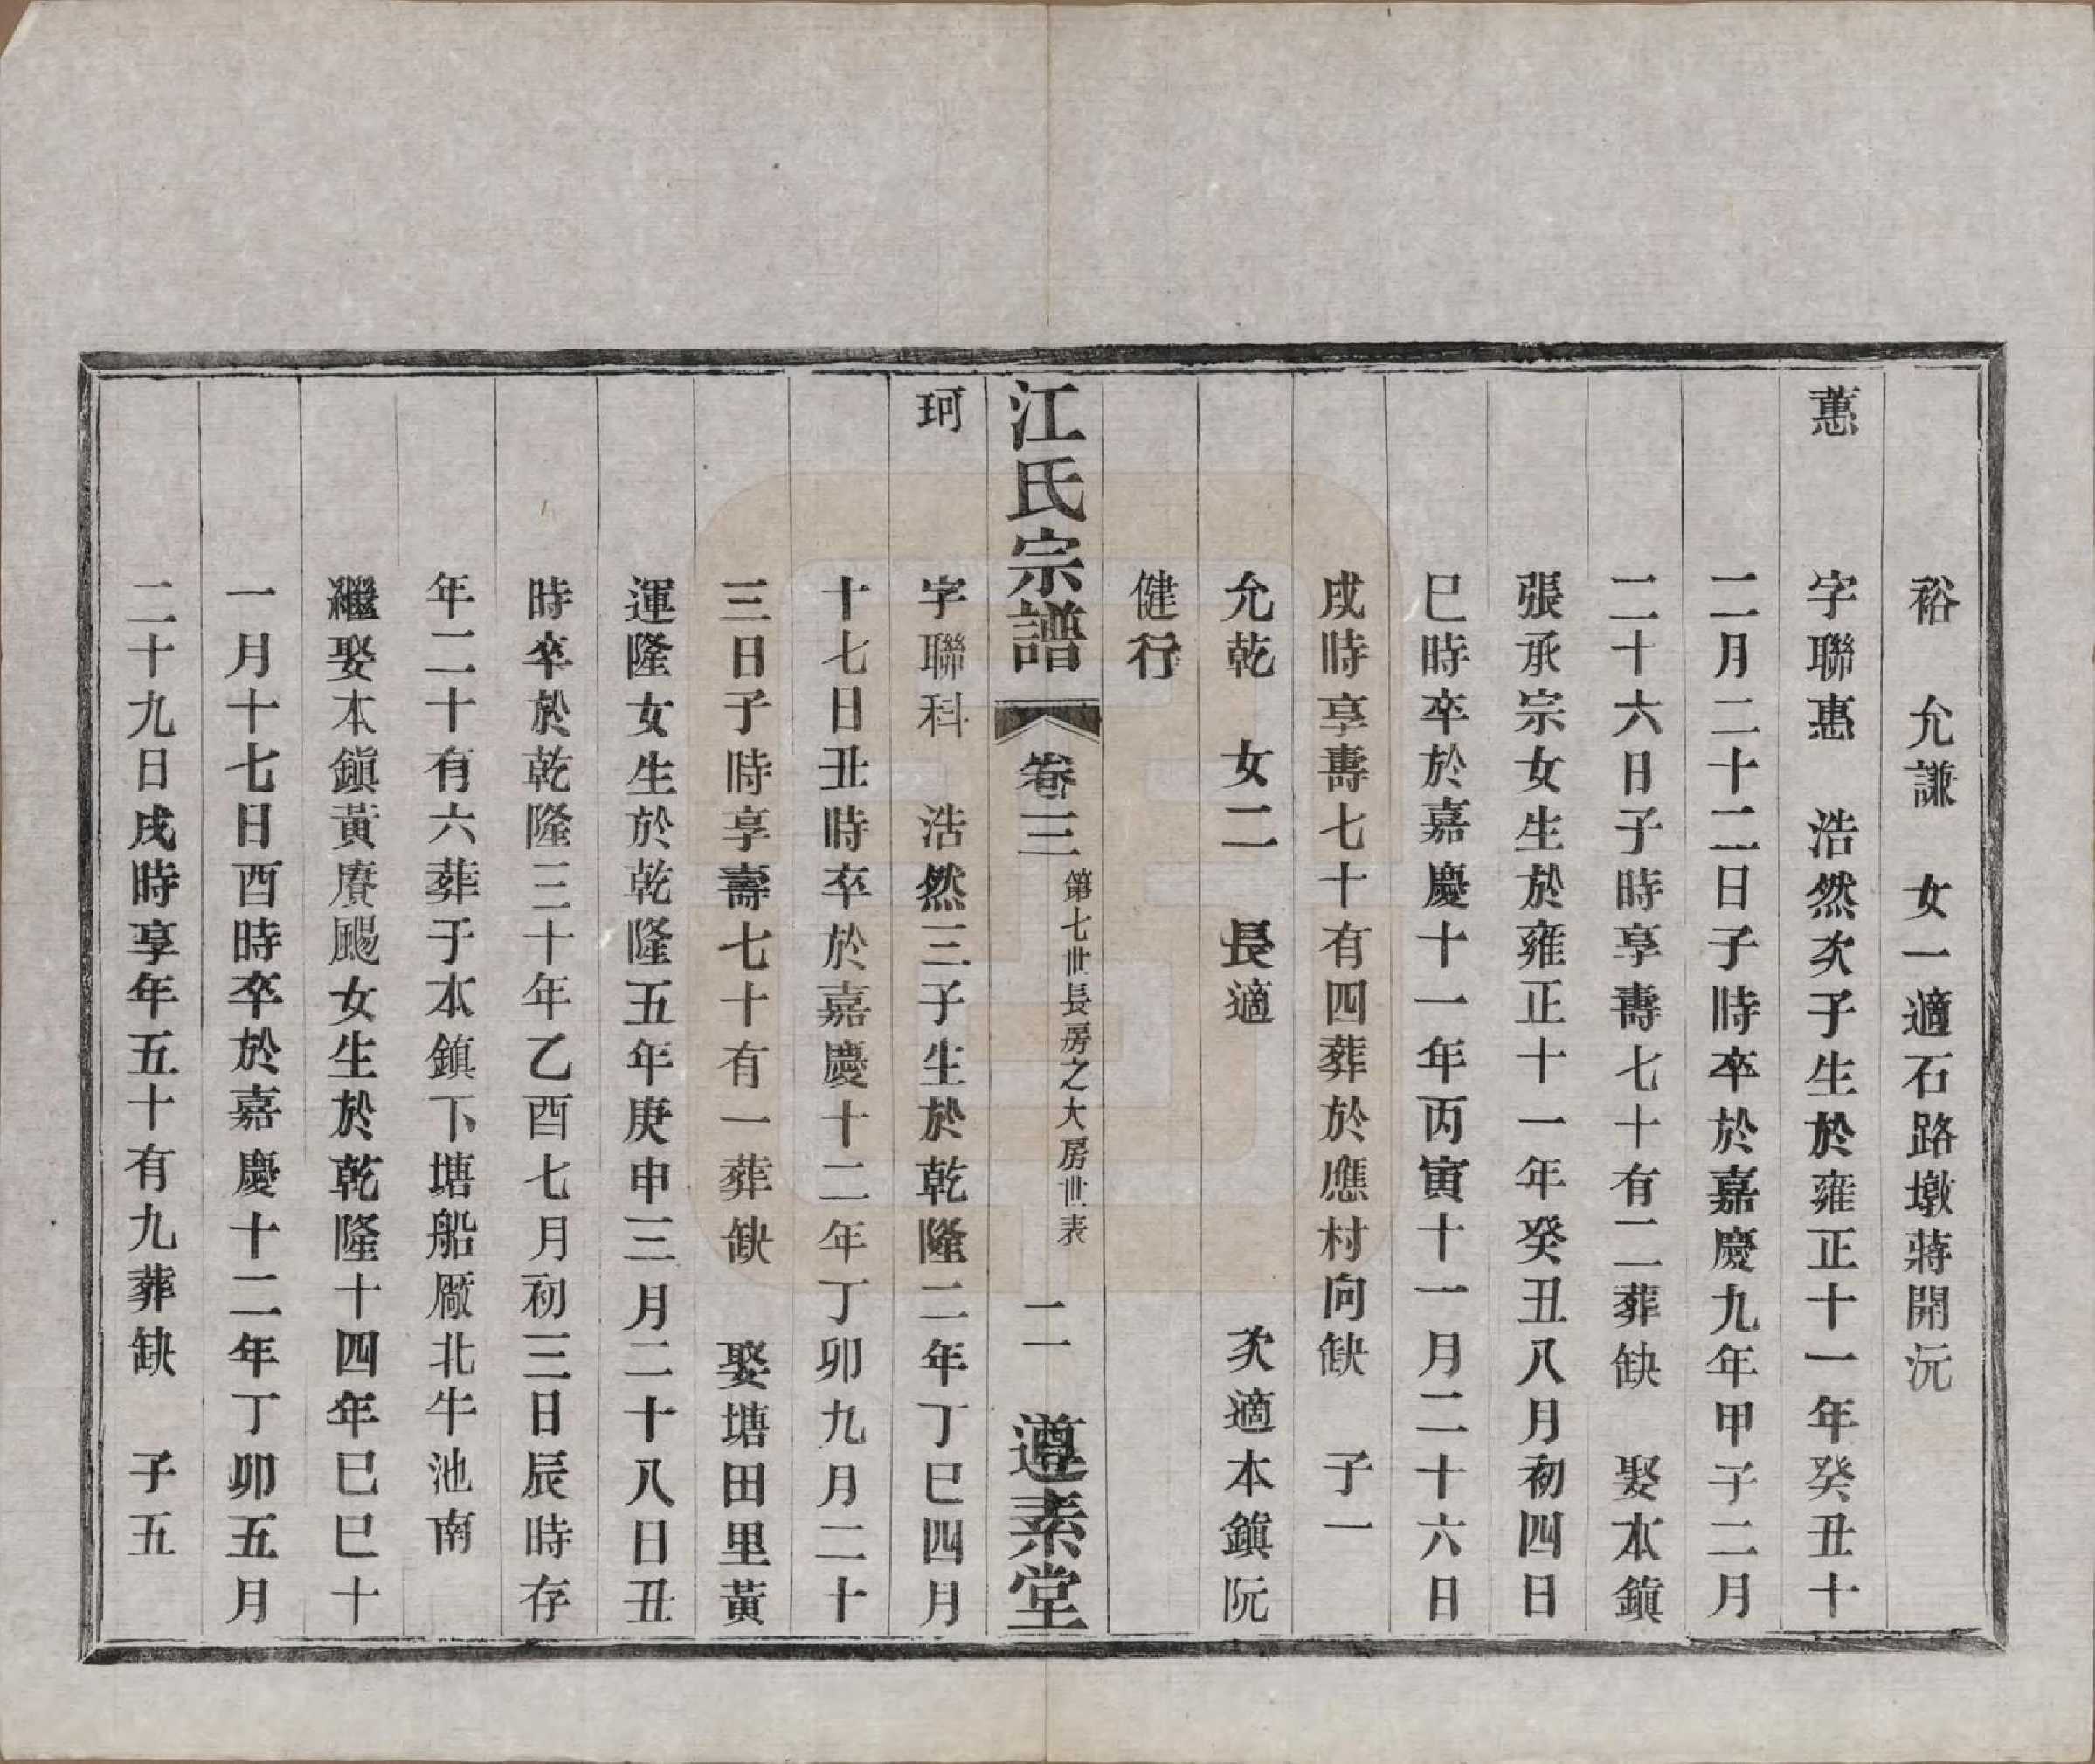 裕　允謙　女一適石路墩蔣開沅
蕙　字聯惠　浩然次子生於雍正十一年癸丑十
二月二十二日子時卒於嘉慶九年甲子二月
二十六日子時享壽七十有二葬缺　娶本鎭
張承宗女生於雍正十一年癸丑八月初四日
巳時卒於嘉慶十一年丙寅十一月二十六日
戌時享壽七十有四葬於應村向缺　子一
允乾　女二　長適　次適本鎭阮
健行
江氏宗譜　卷三　第七世長房之大房世表　二　遵素堂
珂　字聯科　浩然三子生於乾隆二年丁巳四月
十七日丑時卒於嘉慶十二年丁卯九月二十
三日子時享壽七十有一葬缺　娶塘田里黃
運隆女生於乾隆五年庚申三月二十八日丑
時卒於乾隆三十年乙酉七月初三日辰時存
年二十有六葬于本鎮下塘船厰北牛池南
繼娶本鎭黃賡颺女生於乾隆十四年巳巳十
一月十七日酉時卒於嘉慶十二年丁卯五月
二十九日戌時享年五十有九葬缺　子五